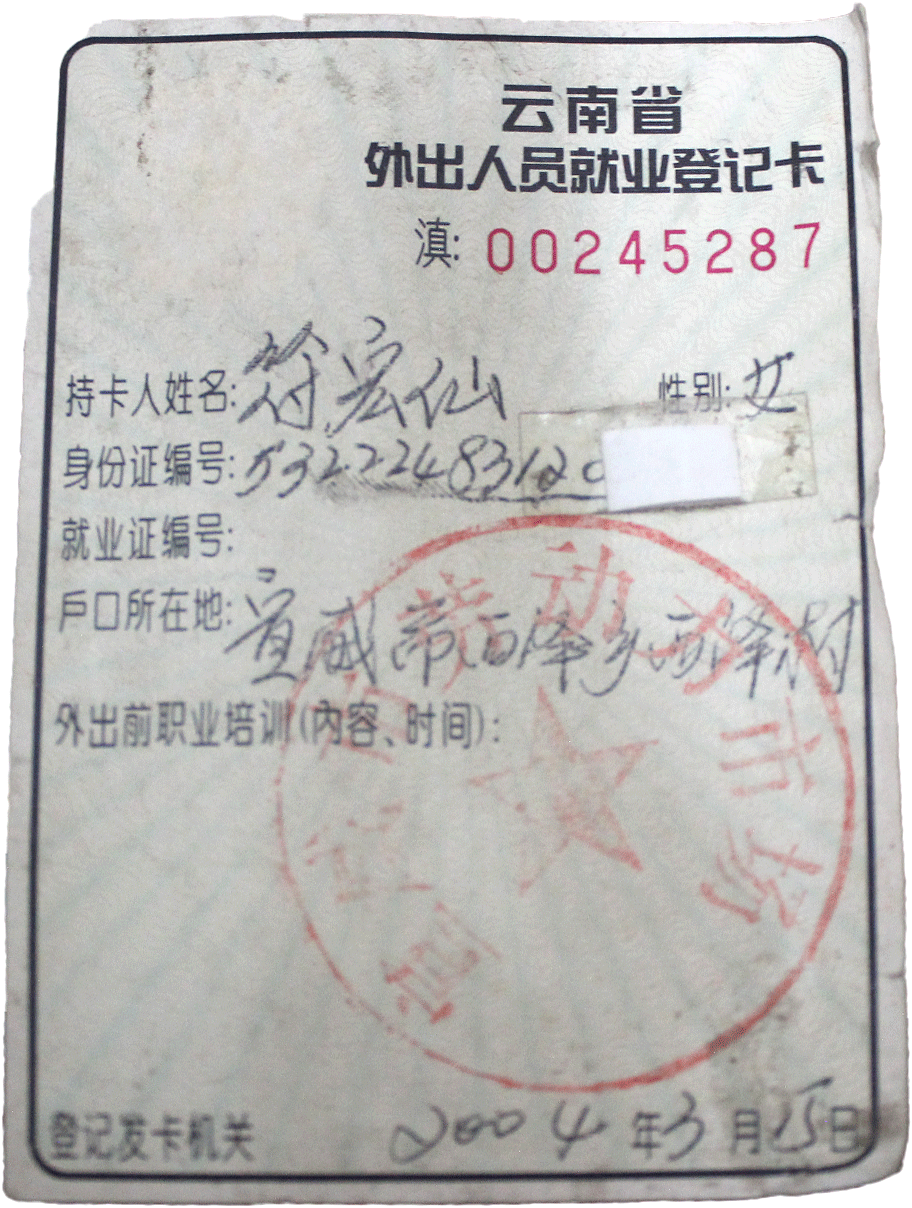 云南省
外出人员就业登记卡
滇: 00245287
持卡人姓名: 符宏仙 性别: 女
身份证编号: 53222483120
就业证编号:
戶口所在地: 宣威市西泽乡西泽村
外出前职业培训(内容、时间):
宣威市劳动力市场
登记发卡机关 2004年3月15日